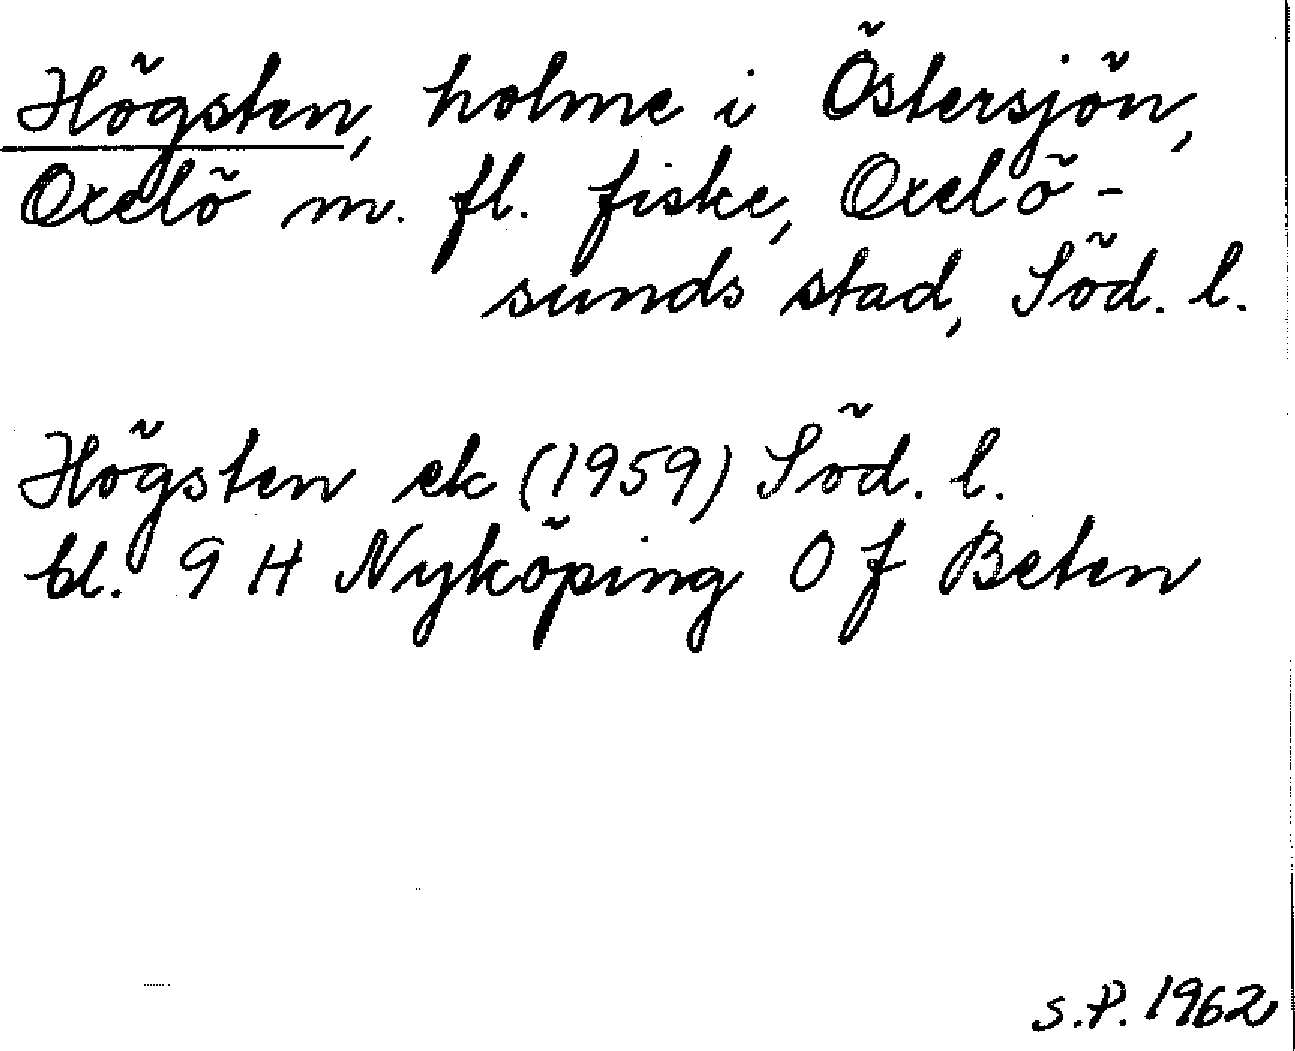 Högsten, holme i Östersjön,
Oxelö m. fl. fiske, Oxelö-
sunds stad, Söd. l.
Högsten ek (1959) Söd. l.
bl. 9 H Nyköping 0 f Beten
S.P. 1962